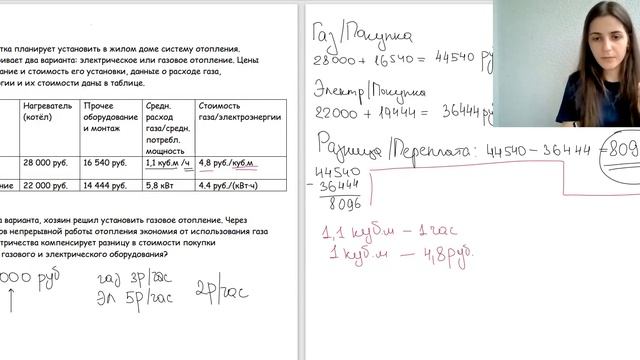 тка планирует установить в жилом доме систему отопления.
ривает два варианта: электрическое или газовое отопление. Цены
ание и стоимость его установки, данные о расходе газа,
гии и их стоимости даны в таблице.
Нагреватель (котёл)
Прочее оборудование и монтаж
Средн. расход газа/средн. потребл. мощность
Стоимость газа/электроэнергии
28 000 руб.
16 540 руб.
1,1 куб.м /ч
4,8 руб./куб.м
ние
22 000 руб.
14 444 руб.
5,8 кВт
4,4 руб./(кВт·ч)
а варианта, хозяин решил установить газовое отопление. Через
ов непрерывной работы отопления экономия от использования газа
тричества компенсирует разницу в стоимости покупки
газового и электрического оборудования?
000 руб
газ 3р/час
Эл 5р/час
2р/час
Газ/Покупка
28000 + 16540 = 44540 ру
Электр/Покупка
22000 + 14444 = 36444 руб
Разница/Переплата: 44540 - 36444 = 809
44540
- 36444
8096
1,1 куб.м - 1 час
1 куб.м - 4,8 руб.